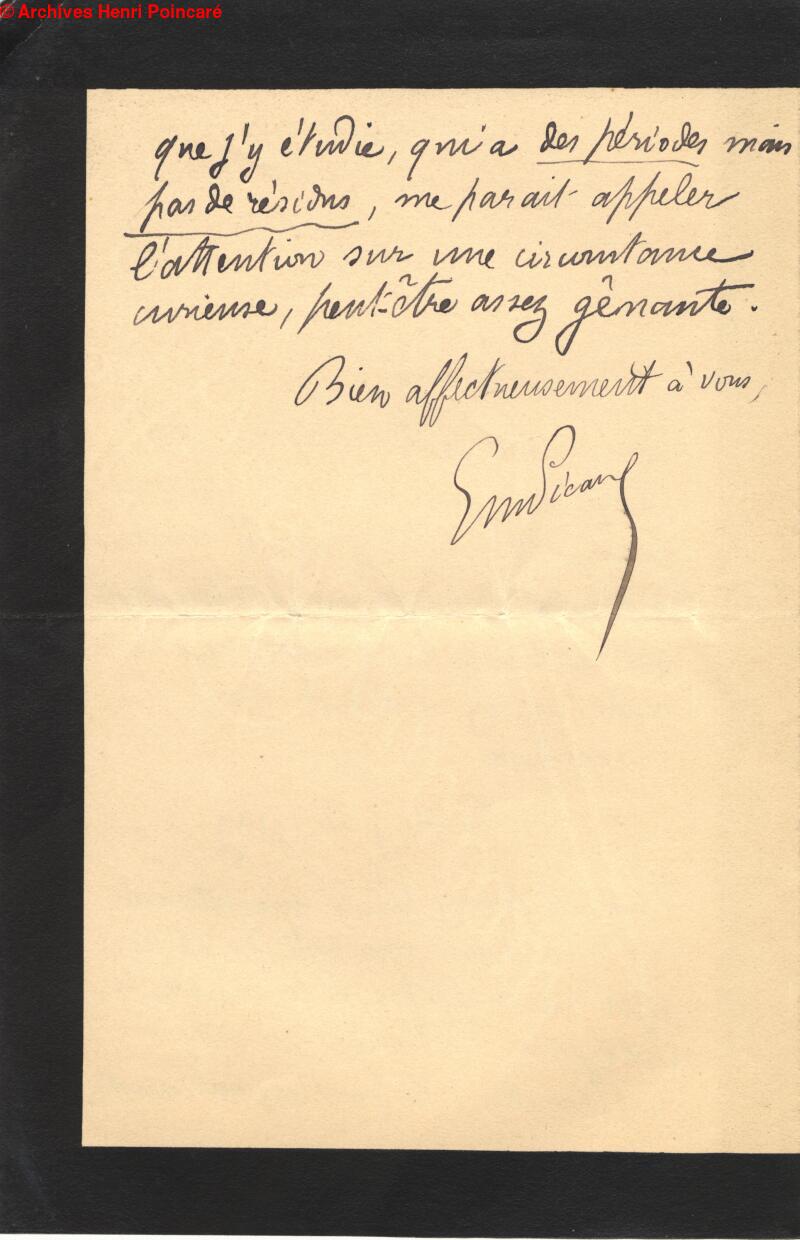 © Archives Henri Poincaré
que j'y étudie, qui a des périodes mais
pas de résidus, me parait appeler
l'attention sur une circonstance
curieuse, peut-être assez gênante.
Bien affectueusement à vous,
Em Picard